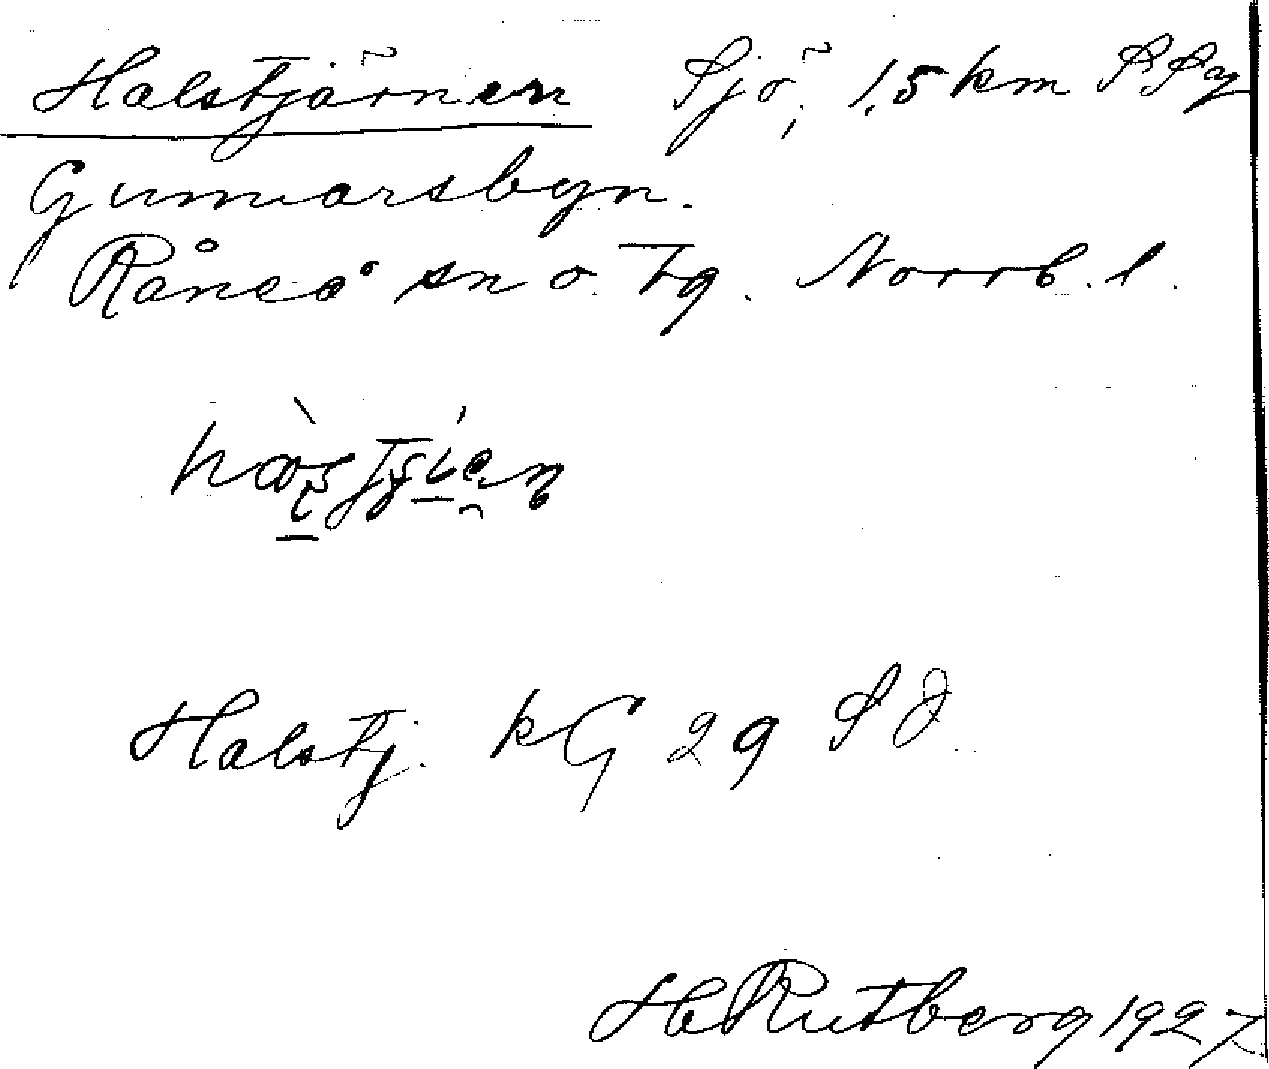 Halstjärnen Sjö, 1,5 km SSV
Gunnarsbyn.
Råneå sn o. tg. Norrb. l.
Halstj. kG 29 SO
H Rutberg 1927